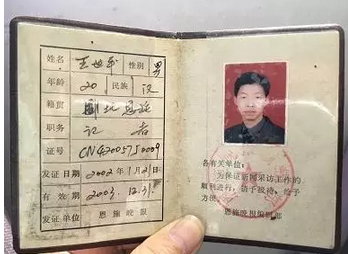 姓名 王世高 性别 男
年龄 20 民族 汉
籍贯 湖北恩施
职务 记者
证号 CN42005750009
发证日期 2002年1月21日
有效期 2003.12.31
发证单位 恩施晚报
各有关单位:
为保证新闻采访工作的
顺利进行,请于接待,给予
方便。
恩施晚报编辑部